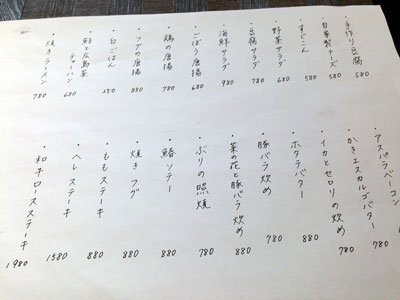 ・手作り豆腐 580
・自家製チーズ 580
・すじこん 580
・野菜サラダ 680
・豆腐サラダ 780
・海鮮サラダ 980
・ごぼう唐揚 680
・鶏の唐揚 780
・フグの唐揚 880
・白ごはん 250
・鮭と広島菜
チャーハン 680
・焼きラーメン 780
アスパラベーコン
・かきエスカルゴバター 780
・イカとセロリの炒め 780
・ホタテバター 880
・豚バラ炒め 780
・菜の花と豚バラ炒め 880
・ぶりの照焼 780
・鰆ソテー 880
・焼きフグ 880
・ももステーキ 880
・ヘレステーキ 1580
・和牛ロースステーキ 1980